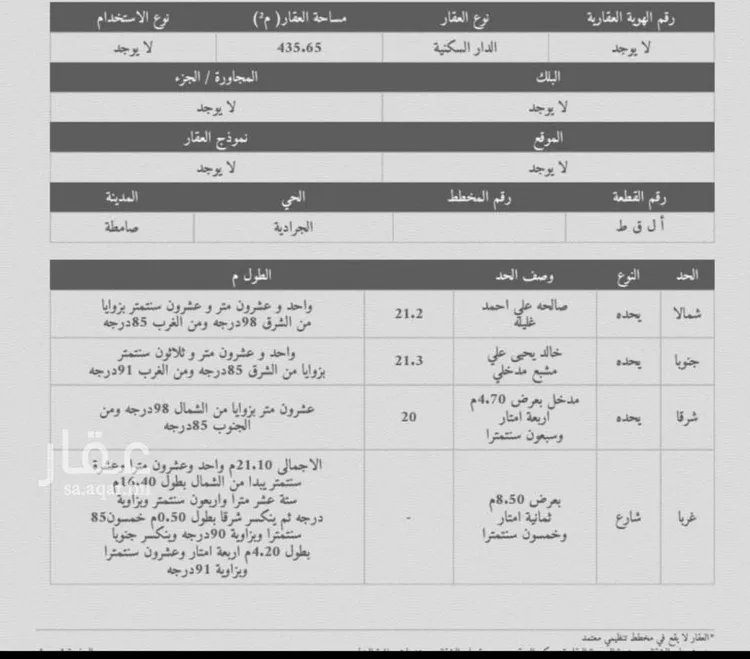 رقم الهوية العقارية نوع العقار مساحة العقار( م²) نوع الاستخدام
لا يوجد الدار السكنية 435.65 لا يوجد
البلك المجاورة / الجزء
لا يوجد لا يوجد
الموقع نموذج العقار
لا يوجد لا يوجد
رقم القطعة رقم المخطط الحي المدينة
أ ل ق ط الجرادية صامطة
الحد النوع وصف الحد الطول م
شمالا يحده صالحه علي احمد غليله 21.2 واحد و عشرون متر و عشرون سنتمتر بزوايا
من الشرق 98درجه ومن الغرب 85درجه
جنوبا يحده خالد يحيى علي مشبع مدخلي 21.3 واحد و عشرون متر و ثلاثون سنتمتر
بزوايا من الشرق 85درجه ومن الغرب 91درجه
شرقا يحده مدخل بعرض 4.70م
اربعة امتار
وسبعون سنتمترا
20 عشرون متر بزوايا من الشمال 98درجه ومن
الجنوب 85درجه
غربا شارع بعرض 8.50م
ثمانية امتار
وخمسون سنتمترا
- الاجمالى 21.10م واحد وعشرون مترا وعشرة
سنتمتر يبدا من الشمال بطول 16.40م
ستة عشر مترا واربعون سنتمتر وبزاوية
85درجه ثم ينكسر شرقا بطول 0.50م خمسون
سنتمترا وبزاوية 90درجه وينكسر جنوبا
بطول 4.20م اربعة امتار وعشرون سنتمترا
وبزاوية 91درجه
عقار
sa.aqar.fm
*العقار لا يقع في مخطط تنظيمي معتمد